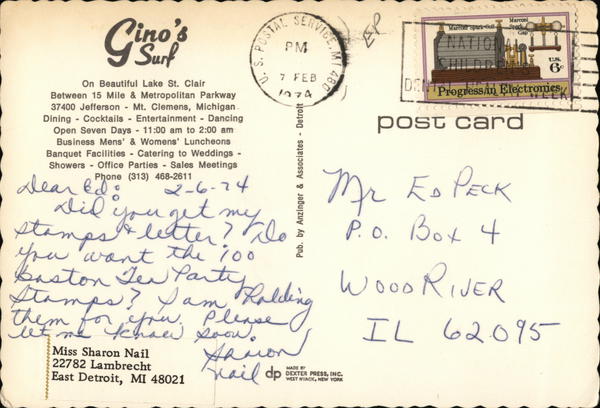 Gino's
Surf
On Beautiful Lake St. Clair
Between 15 Mile & Metropolitan Parkway
37400 Jefferson - Mt. Clemens, Michigan
Dining - Cocktails - Entertainment - Dancing
Open Seven Days - 11:00 am to 2:00 am
Business Mens' & Womens' Luncheons
Banquet Facilities - Catering to Weddings -
Showers - Office Parties - Sales Meetings
Phone (313) 468-2611
Dear Ed: 2-6-74
Did you get my
stamps & letter? Do
you want the 100
Boston Tea Party
Stamps? I am holding
them for you. Please
let me know soon.
Sharon
Nail
Miss Sharon Nail
22782 Lambrecht
East Detroit, MI 48021
dp
MADE BY
DEXTER PRESS, INC.
WEST NYACK, NEW YORK
Pub. by Anzinger & Associates - Detroit
U. S. POSTAL SERVICE, MI 480
PM
7 FEB
1974
EP
Marconi Spark Coil
Marconi
Spark
Gap
U.S.
6c
Progress in Electronics
NATIONAL
CHILDREN'S
DENTAL HEALTH WEEK
post card
Mr Ed Peck
P.O. Box 4
Wood River
IL 62095